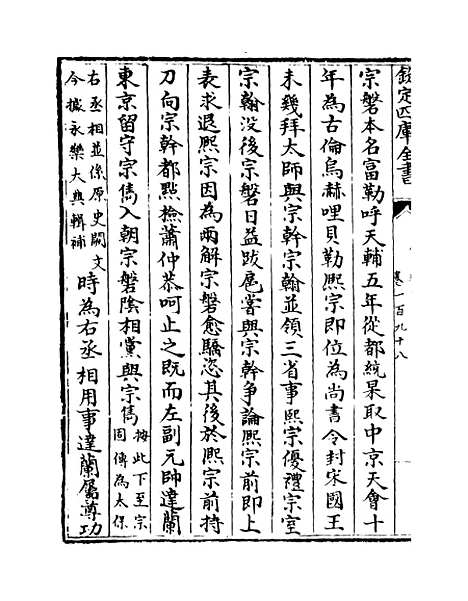 欽定四庫全書
卷一百九十八
宗磐本名富勒呼天輔五年從都統杲取中京天會十
年為古倫烏赫哩貝勒熙宗即位為尚書令封宋國王
未幾拜太師與宗幹宗翰並領三省事熙宗優禮宗室
宗翰沒後宗磐日益跋扈嘗與宗幹爭論熙宗前即上
表求退熙宗因為兩解宗磐愈驕恣其後於熙宗前持
刀向宗幹都點檢蕭仲恭呵止之既而左副元帥達蘭
東京留守宗雋入朝宗磐陰相黨與宗雋
按此下至宗
固傳為太保
右丞相並係原史闕文
今據永樂大典輯補
時為右丞相用事達蘭屬尊功